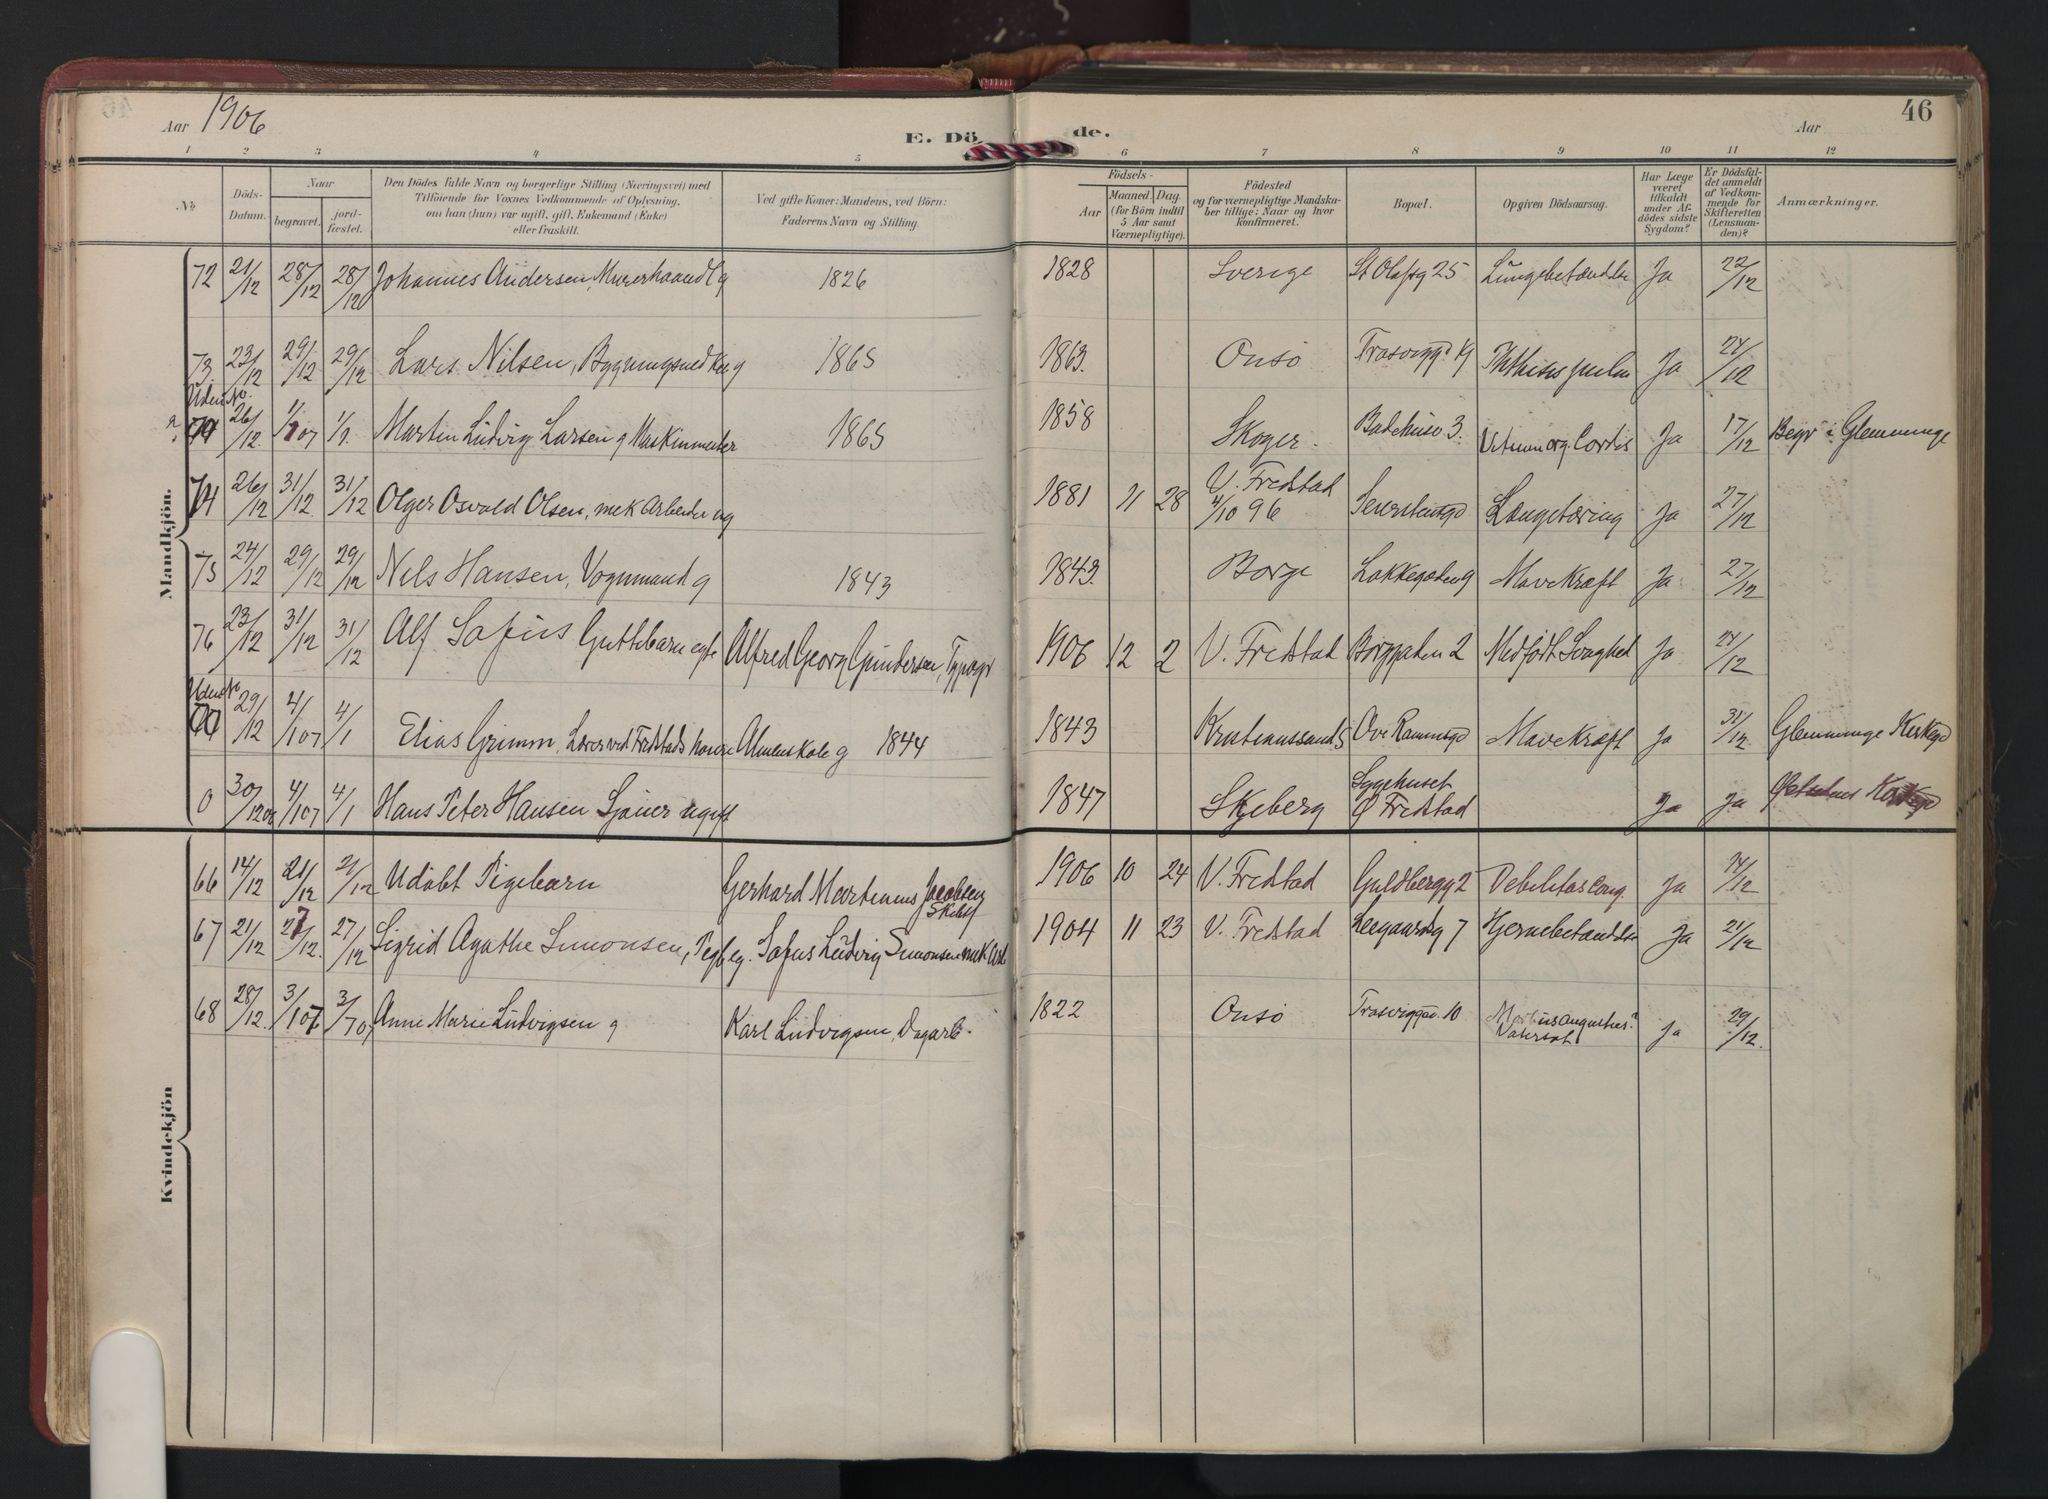 Aar 1906
E. Dö de.
Aar
46
1 2 3 4 5 6 7 8 9 10 11 12
No
Döds-
Datum.
Naar
begravet.
jord-
fæstet.
Den Dödes fulde Navn og borgerlige Stilling (Næringsvei) med
Tilföiende for Voxnes Vedkommende af Oplysning,
om han (hun) var ugift, gift, Enkemand (Enke)
eller fraskilt.
Ved gifte Koner: Mandens, ved Börn:
Faderens Navn og Stilling.
Födsels-
Aar
Maaned.
Dag.
(for Börn indtil
5 Aar samt
Værnepligtige).
Födested
og for værnepligtige Mandska-
ber tillige: Naar og hvor
konfirmeret.
Bopæl.
Opgiven Dödsaarsag.
Har Læge
været
tilkaldt
under Af-
dödes sidste
Sygdom?
Er Dödsfal-
det anmeldt
af Vedkom-
mende for
Skifteretten
(Lensman-
den)?
Anmærkninger.
Mandkjön.
72 21/12 28/12 28/12 Johannes Andersen, Murerhaandl g 1826 1828 Sverige St Olafsg 25 Lungebetændelse Ja 22/12
73 23/12 29/12 29/12 Lars Nilsen, Bygningssnedker g 1865 1863. Onsö Ththisis pulm Ja 24/12
Uden No.
26/12 1/1 07 1/1. Martin Ludvig Larsen g Maskinmester 1865 1858 Skoger. Badehusv 3. Vitium org. Cordis Ja 17/12 Begr i Glemminge
74 26/12 31/12 31/12 Olger Osvald Olsen, mek Arbeider ug 1881 11 28 V. Fredstad
4/10 96 Lungetæring Ja 27/12
75 24/12 29/12 29/12 Nils Hansen, Vognmand g 1843 1843. Borge Løkkegaden 9 Mavekræft Ja 27/12
76 23/12 31/12 31/12 Alf Sofus Guttebarn egte Alfred Georg Gundersen, Typogr 1906 12 2 V. Fredstad Borggaden 2 Medfødt Svaghed Ja 24/12
Uden No
29/12 4/1 07 4/1 Elias Grimm, Lærer ved Fredstads høiere Almenskole g 1844 1843 Kristianssand S Ove Rammsgd Mavekræft Ja 31/12. Glemminge Kirkegd
0 30/12 06 4/1 07 4/1 Hans Peter Hansen Sjauer ugift 1847 Skjeberg Sygehuset
Ø Fredstad Ja Ja
Kvindekjön
66 14/12 21/12 21/12 Udöbt Pigebarn Gerhard Martinius Jacobsen 1906 10 24 V. Fredstad Guldbergg 2 Debilitas cong. Ja 14/12
67 21/12 27/12. 27/12 Sigrid Agathe Simonsen, Pigb eg. Sofus Ludvig Simonsen mek Arb 1904 11 23 V. Fredstad Leegaardsg 7 Hjernebetændelse Ja 21/12
68 28/12. 3/1 07 Anne Marie Ludvigsen g Karl Ludvigsen, Dagarb. 1822 Onsö 10 Ja 29/12.